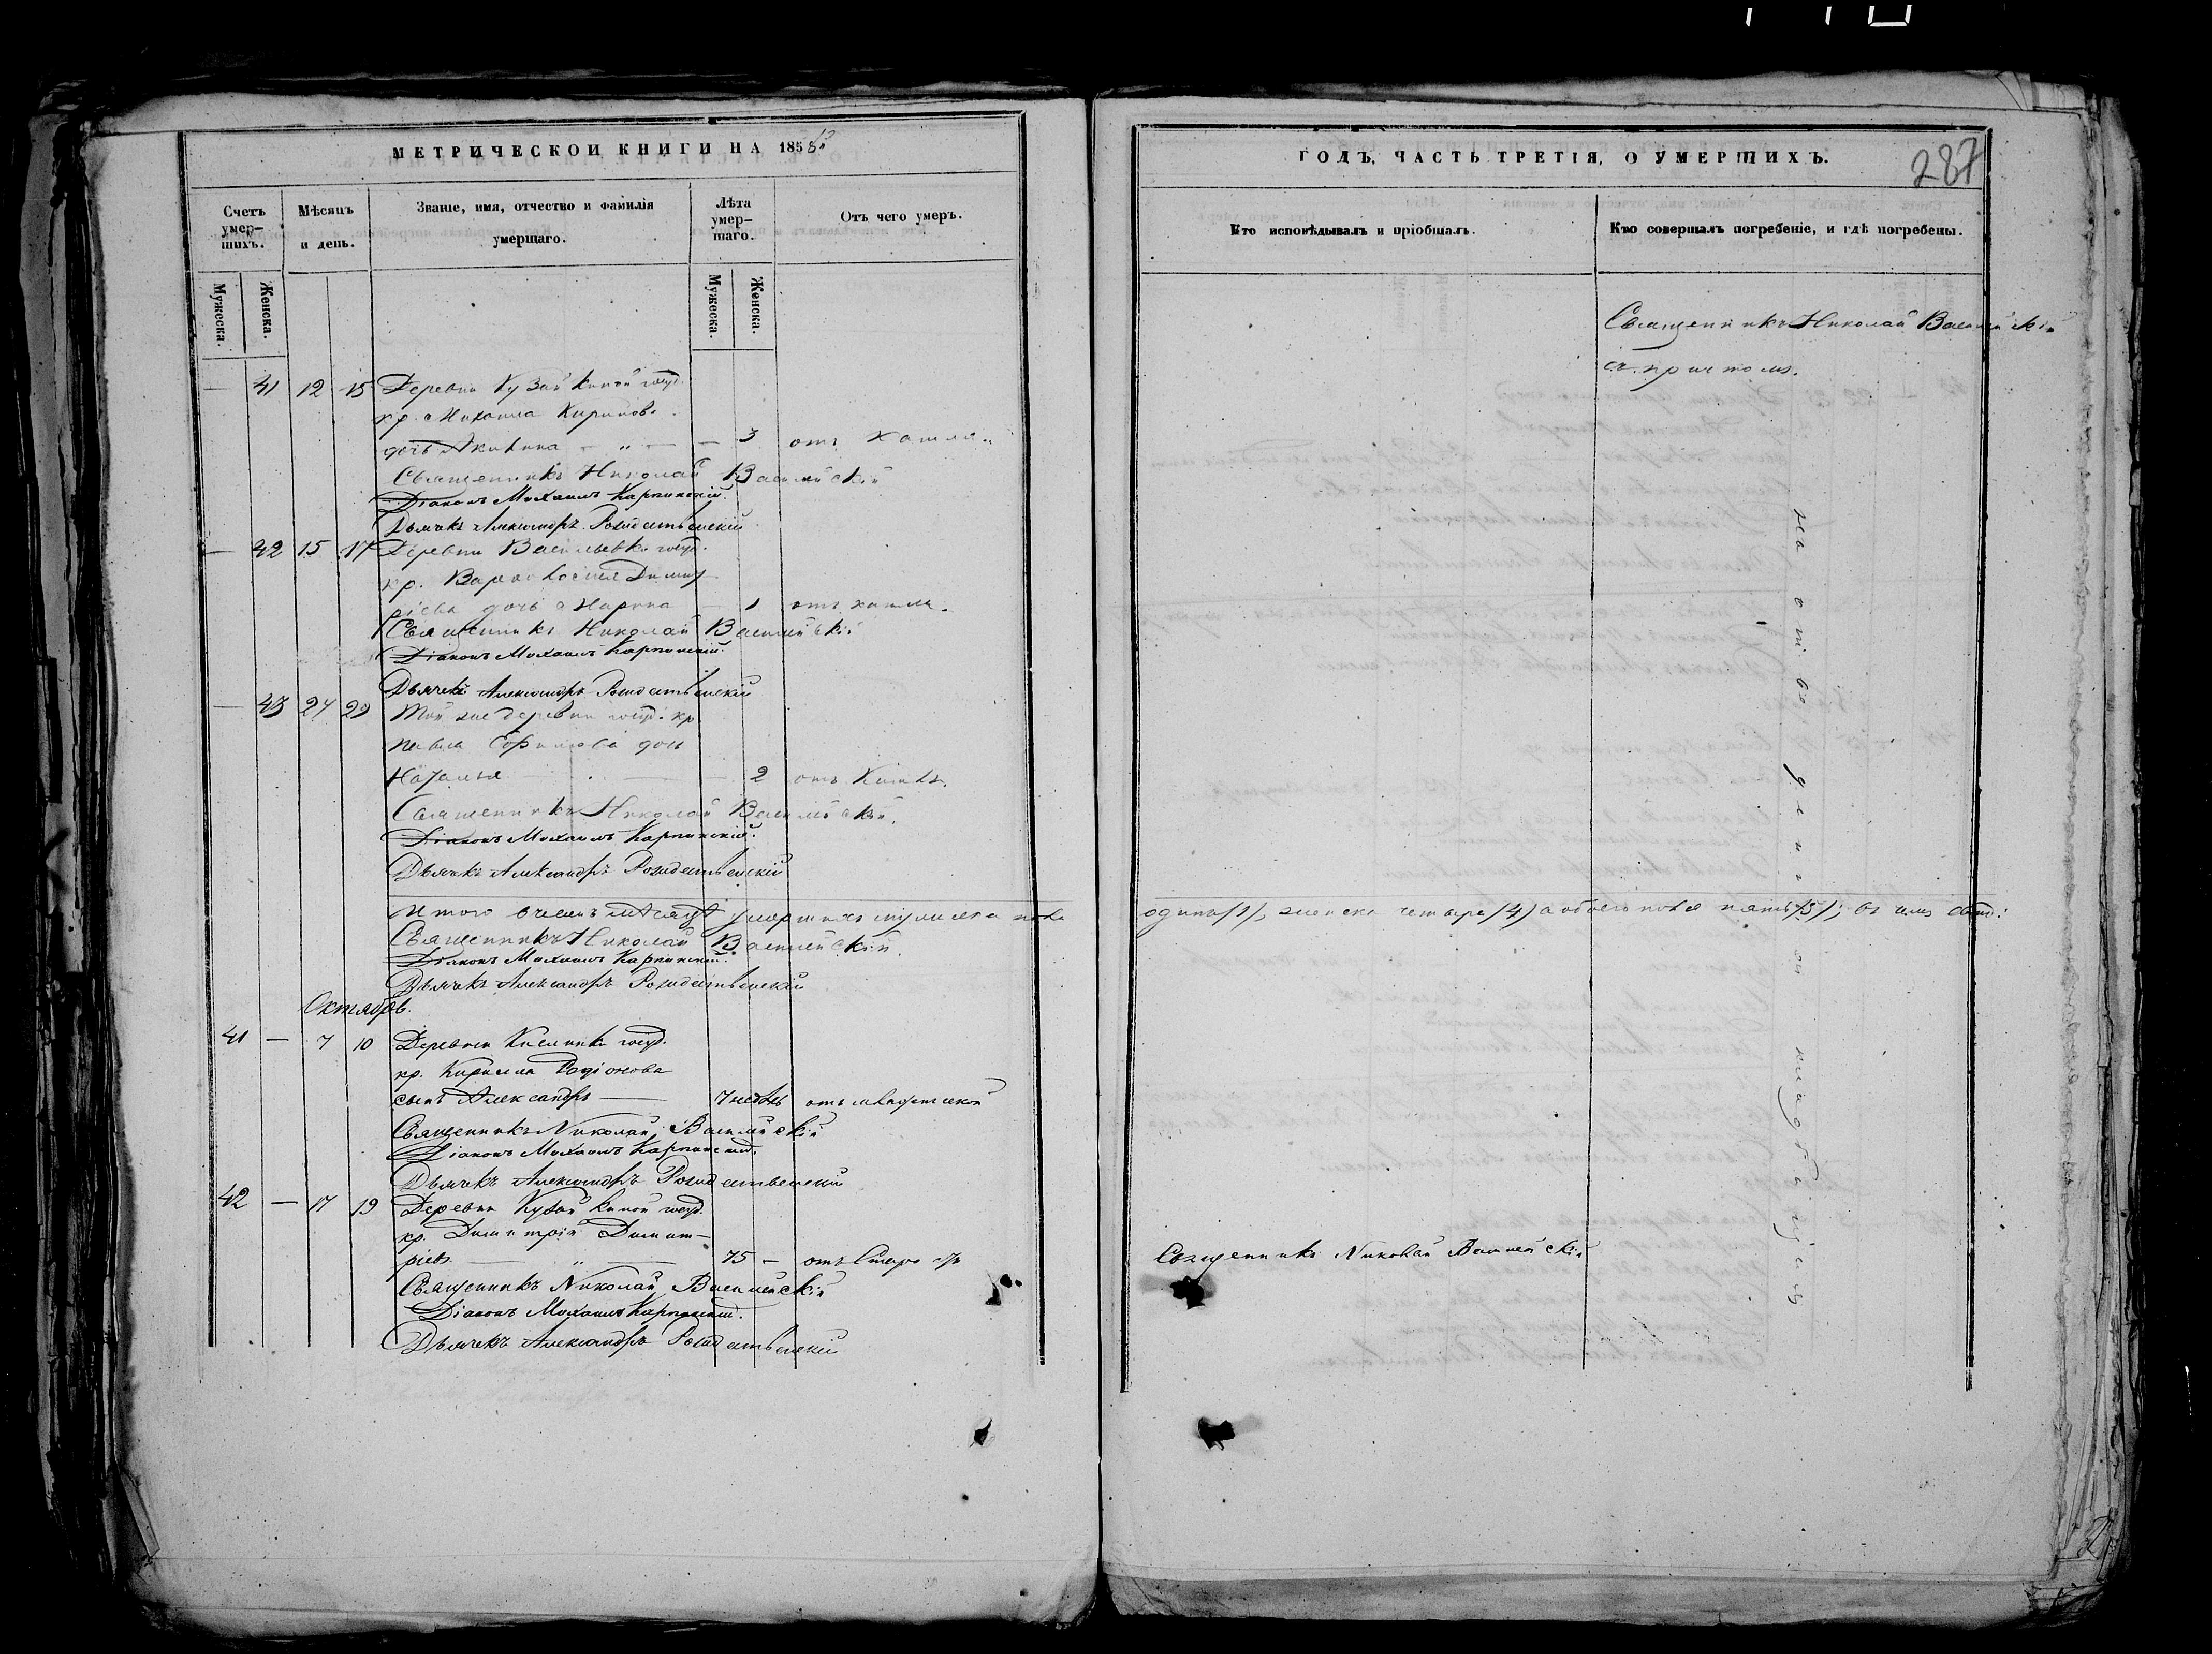 МЕТРИЧЕСКОЙ КНИГИ НА 185
Счетъ умер-шихъ.
Мѣсяцъ и день.
Званіе, имя, отчество и фамилія умершаго.
Лѣта умер-шаго.
Отъ чего умеръ.
Мужеска.
Женска.
Мужеска.
Женска.
— 41 12 15 Деревни госуд.
кр. Михаила
дочь Акилина — „ — — 3 отъ кашля.
Священникъ Николай Василійскій
Діаконъ Михаилъ Карпинскій.
Дьячекъ Александръ Рождественскій
— 42 15 17 Деревни Васильевки госуд.
кр. Варфоломея Димит
ріева дочь Марина — 1 отъ кашля.
Священникъ Николай Василійскій
Діаконъ Михаилъ Карпинскій.
Дьячекъ Александръ Рождественскій
— 43 27 29 Той же деревни госуд. кр.
Павла дочь
Наталья — 2 отъ
Священникъ Николай Василійскій.
Діаконъ Михаилъ Карпинскій.
Дьячекъ Александръ Рождественскій
Итого въ семъ мѣсяцѣ умершихъ мужеска пола
Священникъ Николай Василійскій.
Діаконъ Михаилъ Карпинскій.
Дьячекъ Александръ Рождественскій
Октябрь.
41 — 7 10 Деревни госуд.
кр. Кирилла Родіонова
сынъ Александръ — 7 недѣль отъ младенческой
Священникъ Николай Василійскій
Діаконъ Михаилъ Карпинскій.
Дьячекъ Александръ Рождественскій
42 — 17 19 Деревни госуд.
кр. Димитрій Димит-
ріевъ — „ — 75 — отъ
Священникъ Николай Василійскій
Діаконъ Михаилъ Карпинскій.
Дьячекъ Александръ Рождественскій
ГОДЪ, ЧАСТЬ ТРЕТІЯ, О УМЕРШИХЪ.
287
Кто исповѣдывалъ и пріобщалъ.
Кто совершалъ погребеніе, и гдѣ погребены.
Священникъ Николай Василійскій
съ причтомъ.
одинъ /1/, женска четыре /4/ а обоего пола пять /5/;
Священникъ Николай Василійскій
на отведенномъ кладбищѣ